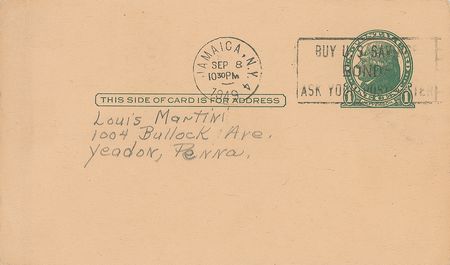 JAMAICA, N.Y.
SEP 8
10 30 PM
1949
BUY U.S. SAVINGS
BONDS
ASK YOUR POSTMASTER
THIS SIDE OF CARD IS FOR ADDRESS
Louis Martini
1004 Bullock Ave.
Yeadon, Penna.